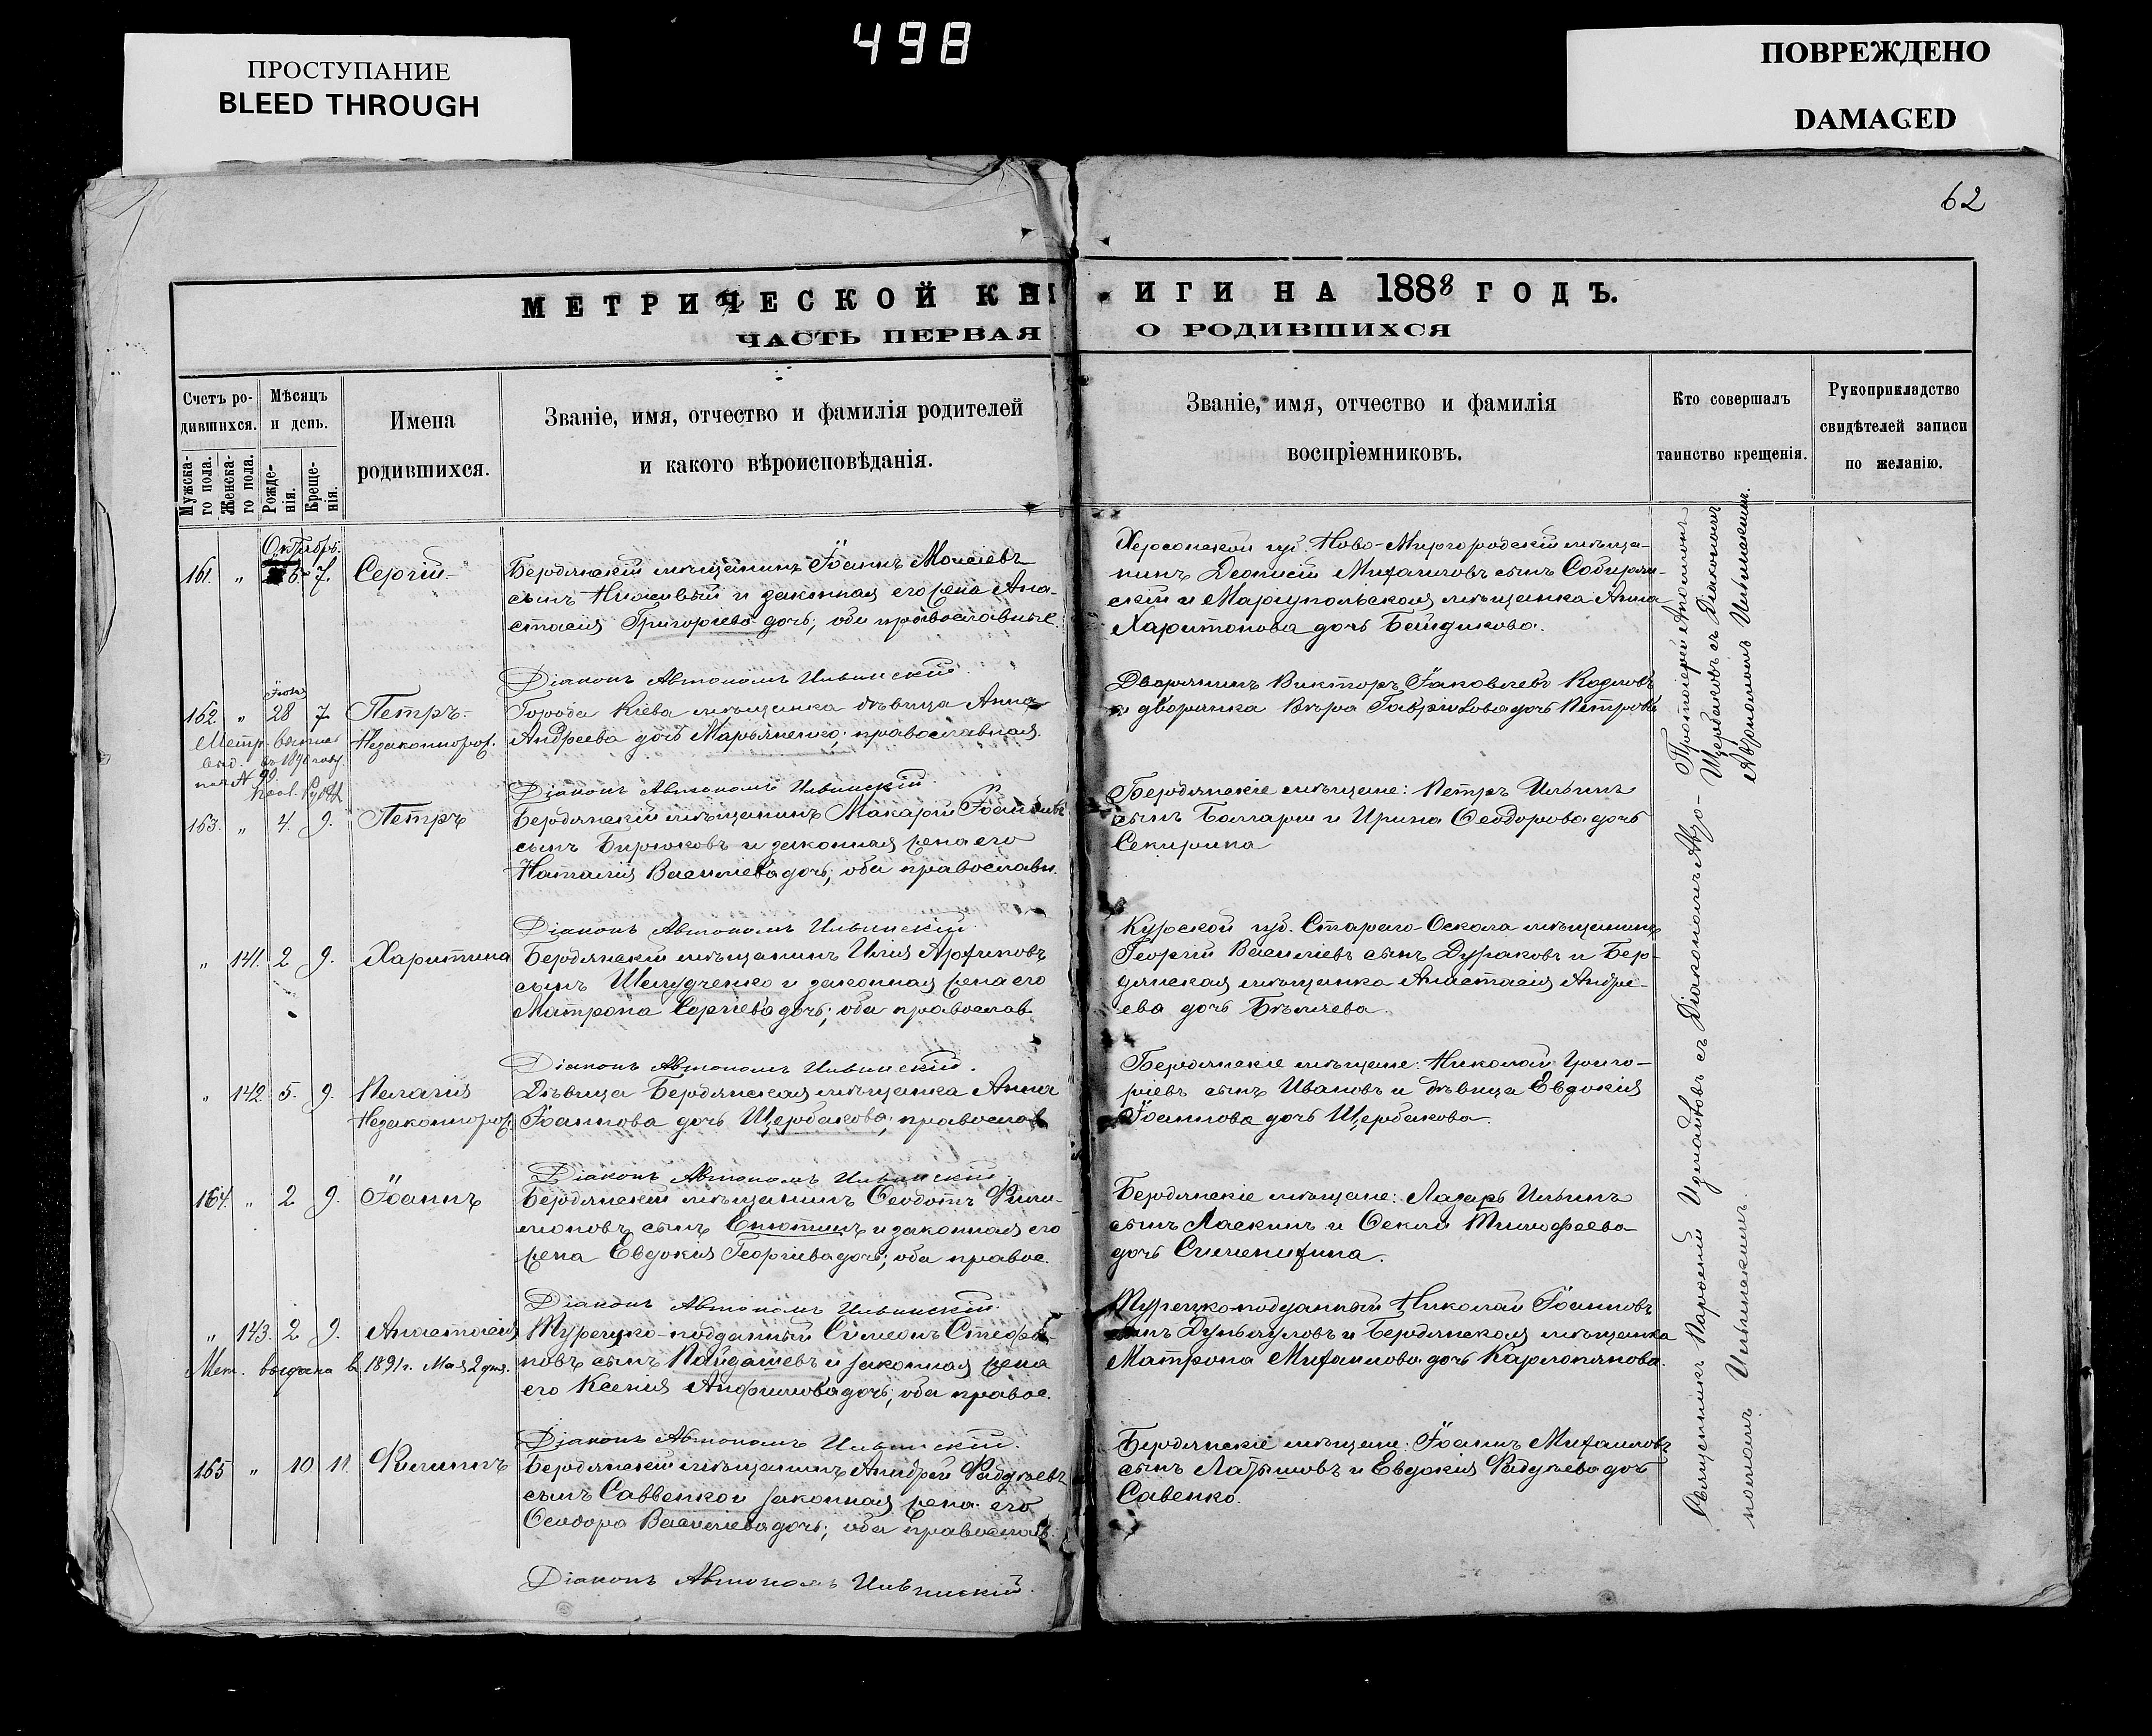 ПРОСТУПАНИЕ
BLEED THROUGH
498
ПОВРЕЖДЕНО
DAMAGED
62
МЕТРИЧЕСКОЙ КНИГИ НА 1888 ГОДЪ.
ЧАСТЬ ПЕРВАЯ О РОДИВШИХСЯ
Счетъ ро-
дившихся.
Мужска-
го пола.
Женска-
го пола.
Мѣсяцъ
и день.
Рожде-
нія.
Креще-
нія.
Имена
родившихся.
Званіе, имя, отчество и фамилія родителей
и какого вѣроисповѣданія.
Званіе, имя, отчество и фамилія
воспріемниковъ.
Кто совершалъ
таинство крещенія.
Рукоприкладство
свидѣтелей записи
по желанію.
Октябрь.
161. " 6 7. Сергій
Бердянскій мѣщанинъ Іоаннъ Моисеевъ
сынъ и законная его жена Ана-
стасія Григорьева дочь; оба православные.
Херсонской губ. Ново-Миргородскій мѣща-
нинъ Діонисій Михаиловъ сынъ
и Маріупольская мѣщанка Анна
Харитонова дочь
Діаконъ Автономъ Ильинскій.
162 " 28 7 Петръ
Незаконнорож.
Города Кіева мѣщанка дѣвица Анна
Андреева дочь Марьяненко; православная.
Дворянинъ Викторъ Іаковлевъ Козловъ
и дворянка Вѣра Гавриилова дочь Петрова
въ 1890 году
Діаконъ Автономъ Ильинскій.
163. " 4. 9. Петръ
Бердянскій мѣщанинъ Макарій Іоанновъ
сынъ Бирюковъ и законная жена его
Наталія Васильева дочь; оба православн.
Бердянскіе мѣщане: Петръ Ильинъ
сынъ Болгаріи и Ирина Ѳеодорова дочь
Секирина
Діаконъ Автономъ Ильинскій.
" 141. 2 9. Харитина
Бердянскій мѣщанинъ Илія
сынъ Шелудченко и законная жена его
Матрона Сергіева дочь; оба православ.
Курской губ. Стараго-Оскола мѣщанинъ
Георгій Васильевъ сынъ Дураковъ и Бер-
дянская мѣщанка Анастасія Андре-
ева дочь Бѣляева.
Діаконъ Автономъ Ильинскій.
" 142. 5. 9. Пелагія
Незаконнорож.
Дѣвица Бердянская мѣщанка Анна
Іоаннова дочь Щербакова; православ
Бердянскіе мѣщане: Николай Григо-
ріевъ сынъ Ивановъ и дѣвица Евдокія
Іоаннова дочь Щербакова.
Діаконъ Автономъ Ильинскій
164. " 2 9. Іоаннъ
Бердянскій мѣщанинъ Ѳеодотъ Фили-
моновъ сынъ Енютинъ и законная его
жена Евдокія Георгіева дочь; оба правос.
Бердянскіе мѣщане: Лазарь Ильинъ
сынъ Ласкинъ и Ѳекла Тимофеева
дочь
Діаконъ Автономъ Ильинскій.
" 143. 2 9. Анастасія
Мет. выдана в 1891 г. Мая 2 дня.
Турецко-подданный Симеонъ Стефа-
новъ сынъ Пайдашевъ и законная жена
его Ксенія Анфимова дочь; оба правос.
Турецко-подданный Николай Іоанновъ
сынъ и Бердянская мѣщанка
Матрона Михаилова дочь
Діаконъ Автономъ Ильинскій.
165 " 10 11. Филиппъ
Бердянскій мѣщанинъ Андрей Фадѣевъ
сынъ Саввенко и законная жена его
Ѳеодора Васильева дочь; оба православ.
Бердянскіе мѣщане: Іоаннъ Михаиловъ
сынъ Латышовъ и Евдокія Фадѣева дочь
Савенко.
Діаконъ Автономъ Ильинскій.
Протоіерей
Щербаковъ съ Діакономъ
Автономомъ Ильинскимъ.
Священникъ съ Діакономъ Авто-
номомъ Ильинскимъ.